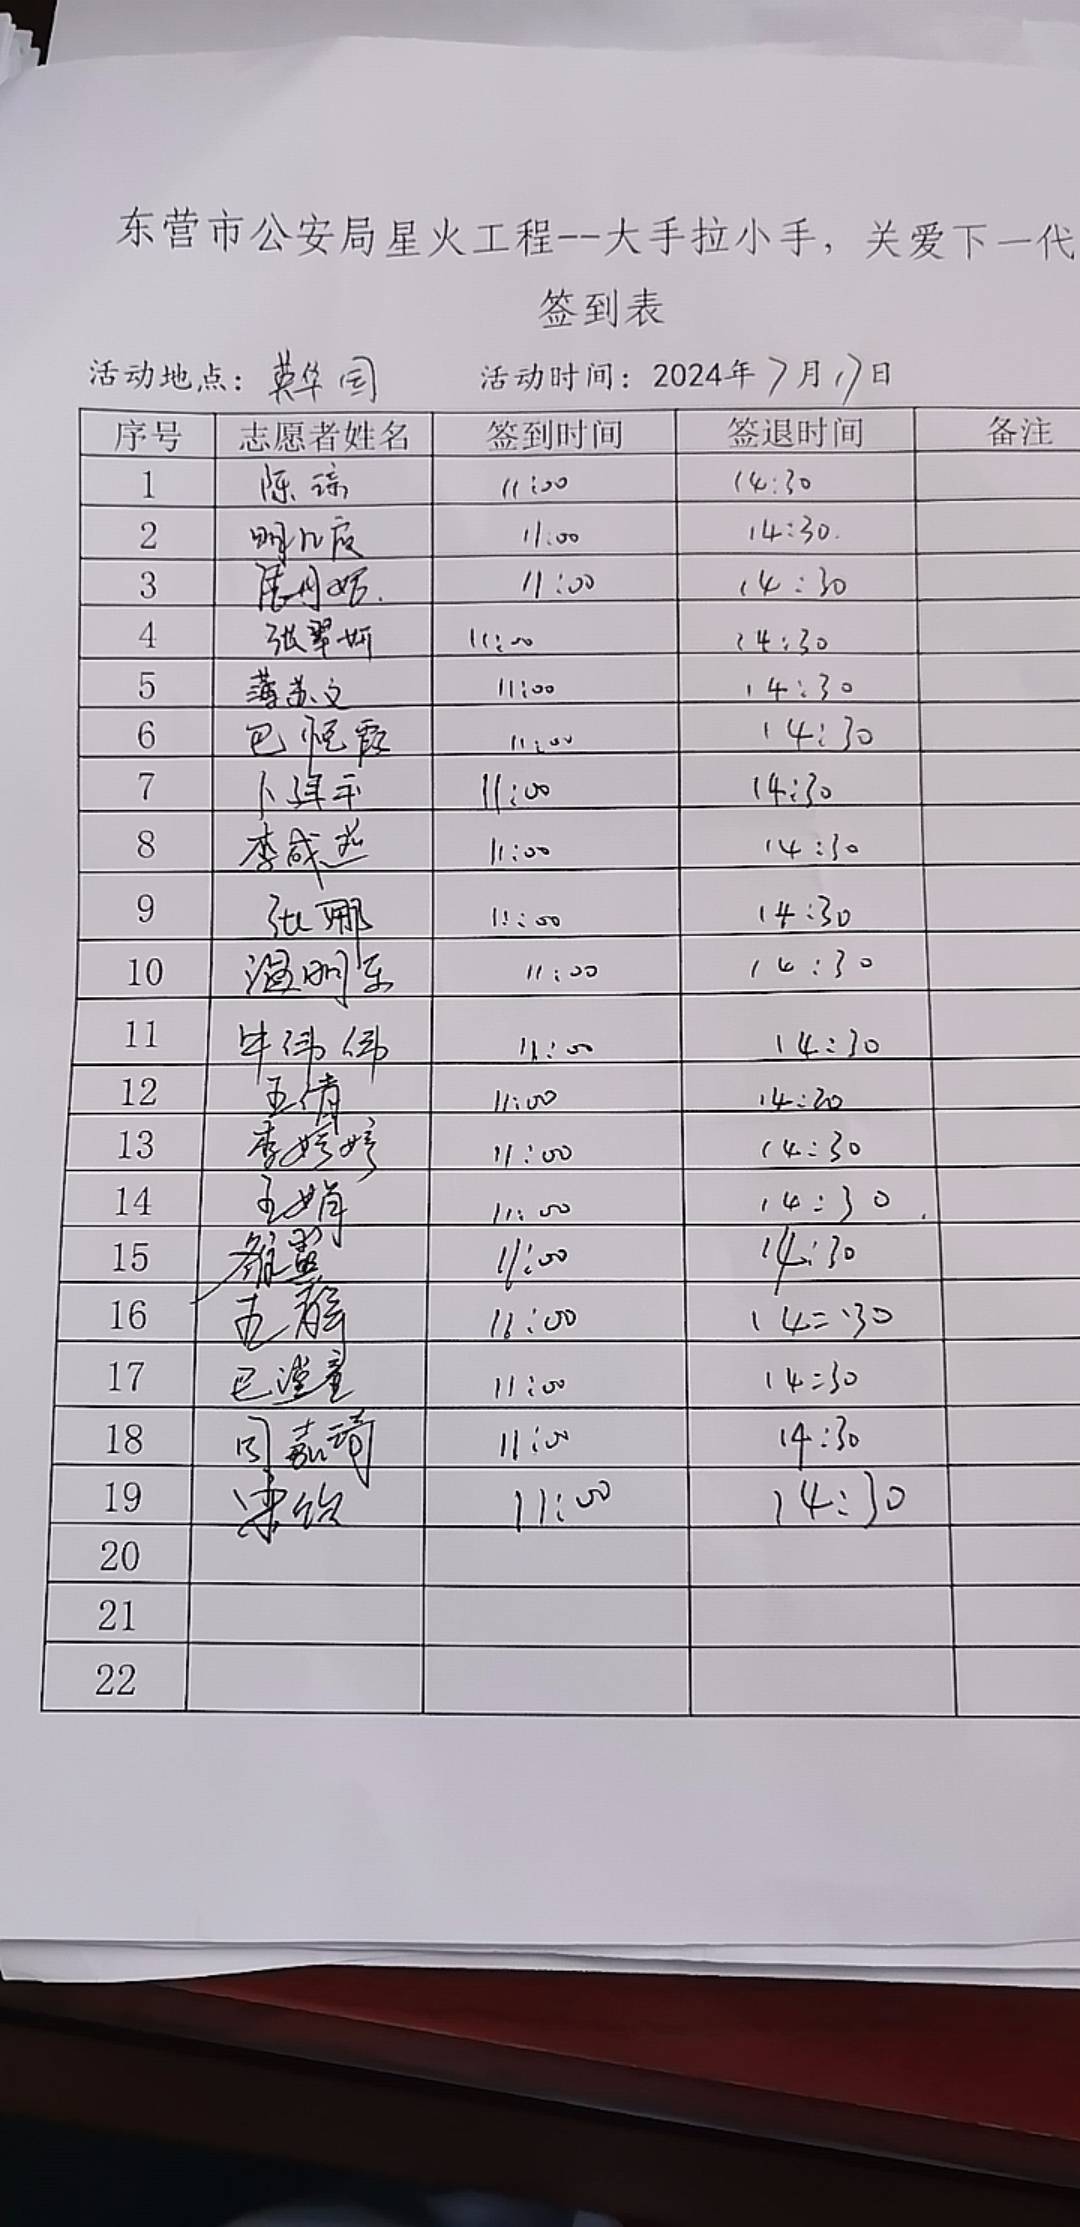 东营市公安局星火工程--大手拉小手，关爱下一代
签到表
活动地点：英华园 活动时间：2024年7月17日
序号 志愿者姓名 签到时间 签退时间 备注
1 陈 11:00 14:30
2 11:00 14:30.
3 11:00 14:30
4 张翠妍 11:00 14:30
5 薄苏文 11:00 14:30
6 巴悦霞 11:00 14:30
7 卜建平 11:00 14:30
8 李成燕 11:00 14:30
9 张娜 11:00 14:30
10 温明东 11:00 14:30
11 牛伟伟 11:00 14:30
12 王倩 11:00 14:30
13 李婷婷 11:00 14:30
14 王娟 11:00 14:30.
15 11:00 14:30
16 11:00 14:30
17 巴滢童 11:00 14:30
18 闫嘉琦 11:00 14:30
19 梁 11:00 14:30
20
21
22